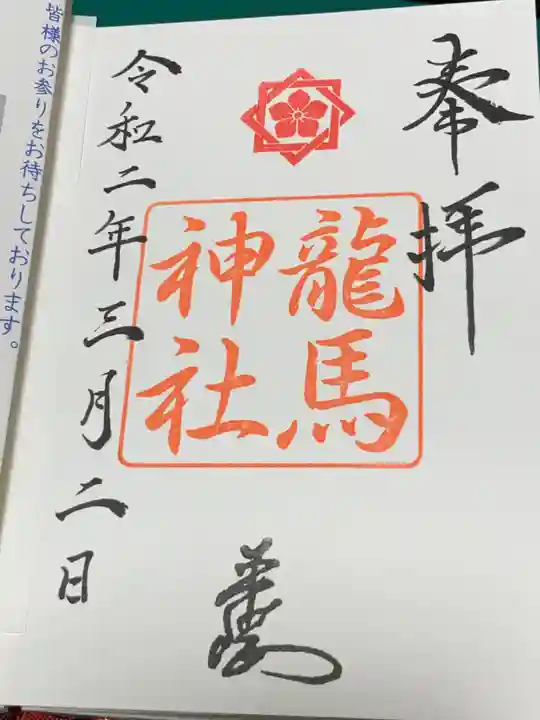 奉拝
龍馬
神社
令和二年三月二日
皆様のお参りをお待ちしております。